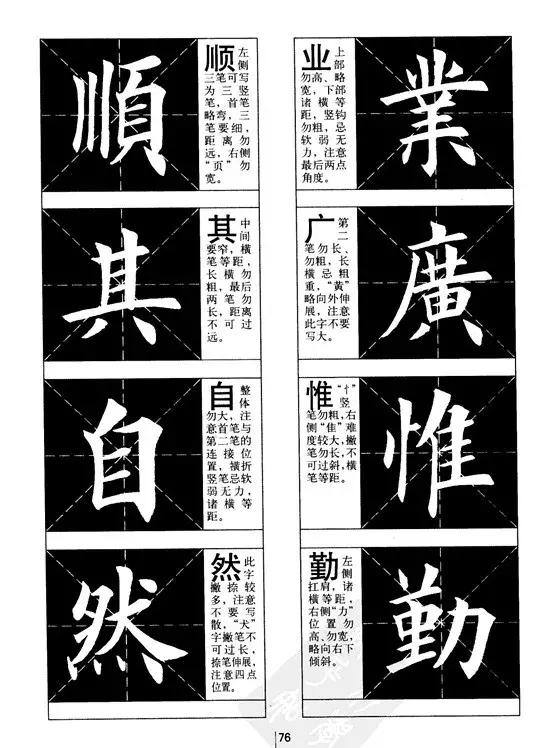 業
业 上部
勿高、略
宽,下部
诸横等
距,竖钩
勿粗,忌
软弱无
力,注意
最后两点
角度。
廣
广 第二
笔勿长、
勿粗,长
横忌粗
重,“黄”
略向外伸
展,注意
此字不要
写大。
惟
惟 “忄”竖
笔勿粗,右
侧“隹”难
度较大,撇
笔勿长,不
可过斜,横
笔等距。
勤
勤 左侧
扛肩,诸
横等距,
右侧“力”
位置勿
高、勿宽,
略向右下
倾斜。
順
顺 左侧
三笔可写
为三竖
笔,首笔
略弯,三
笔要细,
距离勿
远,右侧
“页”勿
宽。
其
其 中间
要窄,横
笔等距,
长横勿
粗,最后
两笔勿
长,距离
不可过
远。
自
自 整体
勿大,注
意首笔与
第二笔的
连接位
置,横折
竖笔忌软
弱无力,
诸横等
距。
然
然 此字
撇捺较
多,注意
不要写
散,“犬”
字撇笔不
可过长,
捺笔伸展,
注意四点
位置。
76